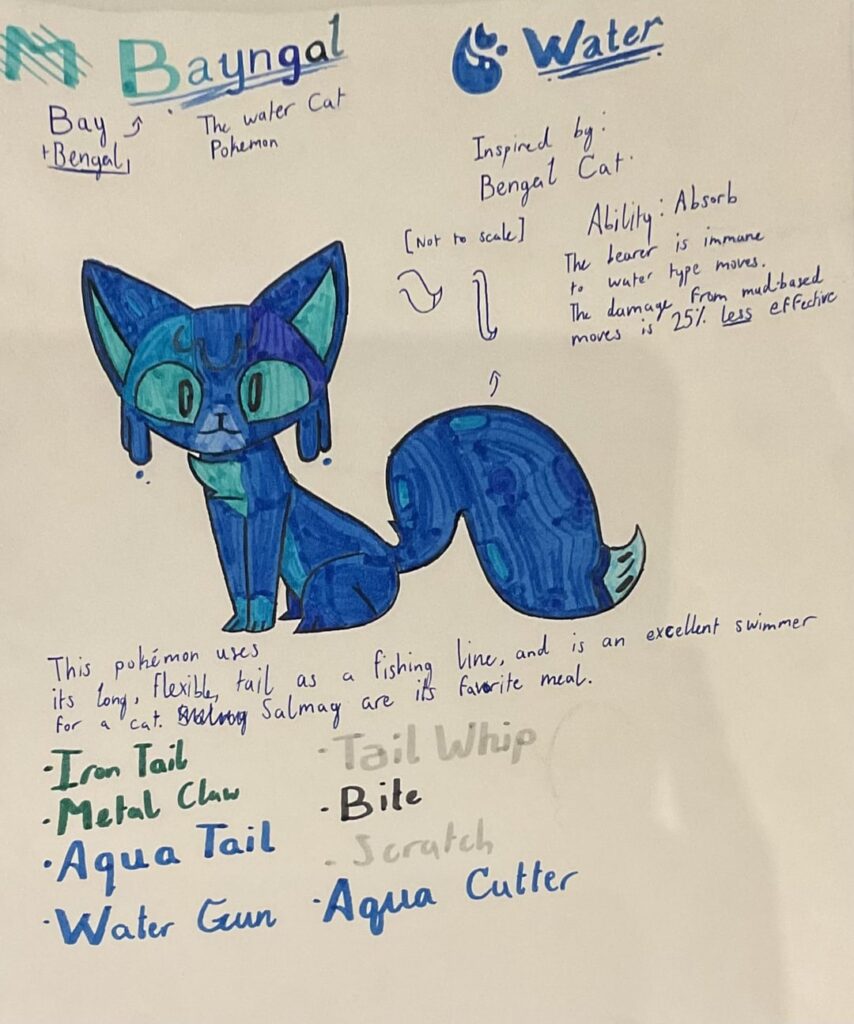 M Bayngal
Water
Bay
+Bengal
The water Cat
Pokemon
Inspired by:
Bengal Cat
[Not to scale]
Ability: Absorb
The bearer is immune
to water type moves.
The damage from mud-based
moves is 25% less effective
This pokémon uses
its long, flexible, tail as a fishing line, and is an excellent swimmer
for a cat. Salmag are its favorite meal.
·Iron Tail
·Metal Claw
·Aqua Tail
·Water Gun
·Tail Whip
·Bite
·Scratch
·Aqua Cutter